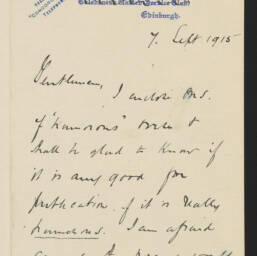 Edinburgh.
7. Sept 1915
Gentlemen,
I enclose M.S.
of "humorous" verse &
shall be glad to know if
it is any good for
publication, if it is really
humorous. I am afraid